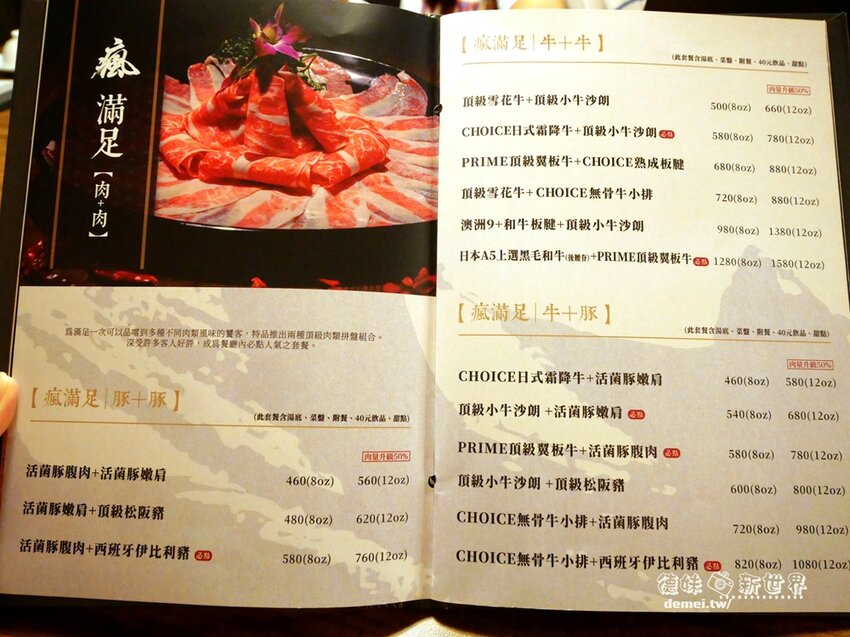 瘋滿足
【肉+肉】
為滿足一次可以品嚐到多種不同肉類風味的饕客,特品推出兩種頂級肉類拼盤組合。
深受許多客人好評,成為餐廳內必點人氣之套餐。
【瘋滿足|豚+豚】
(此套餐含湯底、菜盤、附餐、40元飲品、甜點)
肉量升級50%
活菌豚腹肉+活菌豚嫩肩 460(8oz) 560(12oz)
活菌豚嫩肩+頂級松阪豬 480(8oz) 620(12oz)
活菌豚腹肉+西班牙伊比利豬 必點 580(8oz) 760(12oz)
【瘋滿足|牛+牛】
(此套餐含湯底、菜盤、附餐、40元飲品、甜點)
肉量升級50%
頂級雪花牛+頂級小牛沙朗 500(8oz) 660(12oz)
CHOICE日式霜降牛+頂級小牛沙朗 必點 580(8oz) 780(12oz)
PRIME頂級翼板牛+CHOICE熟成板腱 680(8oz) 880(12oz)
頂級雪花牛+CHOICE無骨牛小排 720(8oz) 880(12oz)
澳洲9+和牛板腱+頂級小牛沙朗 980(8oz) 1380(12oz)
日本A5上選黑毛和牛(後腰脊)+PRIME頂級翼板牛 必點 1280(8oz) 1580(12oz)
【瘋滿足|牛+豚】
(此套餐含湯底、菜盤、附餐、40元飲品、甜點)
肉量升級50%
CHOICE日式霜降牛+活菌豚嫩肩 460(8oz) 580(12oz)
頂級小牛沙朗+活菌豚嫩肩 必點 540(8oz) 680(12oz)
PRIME頂級翼板牛+活菌豚腹肉 必點 580(8oz) 780(12oz)
頂級小牛沙朗+頂級松阪豬 600(8oz) 800(12oz)
CHOICE無骨牛小排+活菌豚腹肉 720(8oz) 980(12oz)
CHOICE無骨牛小排+西班牙伊比利豬 必點 820(8oz) 1080(12oz)
德妹新世界
demei.tw/